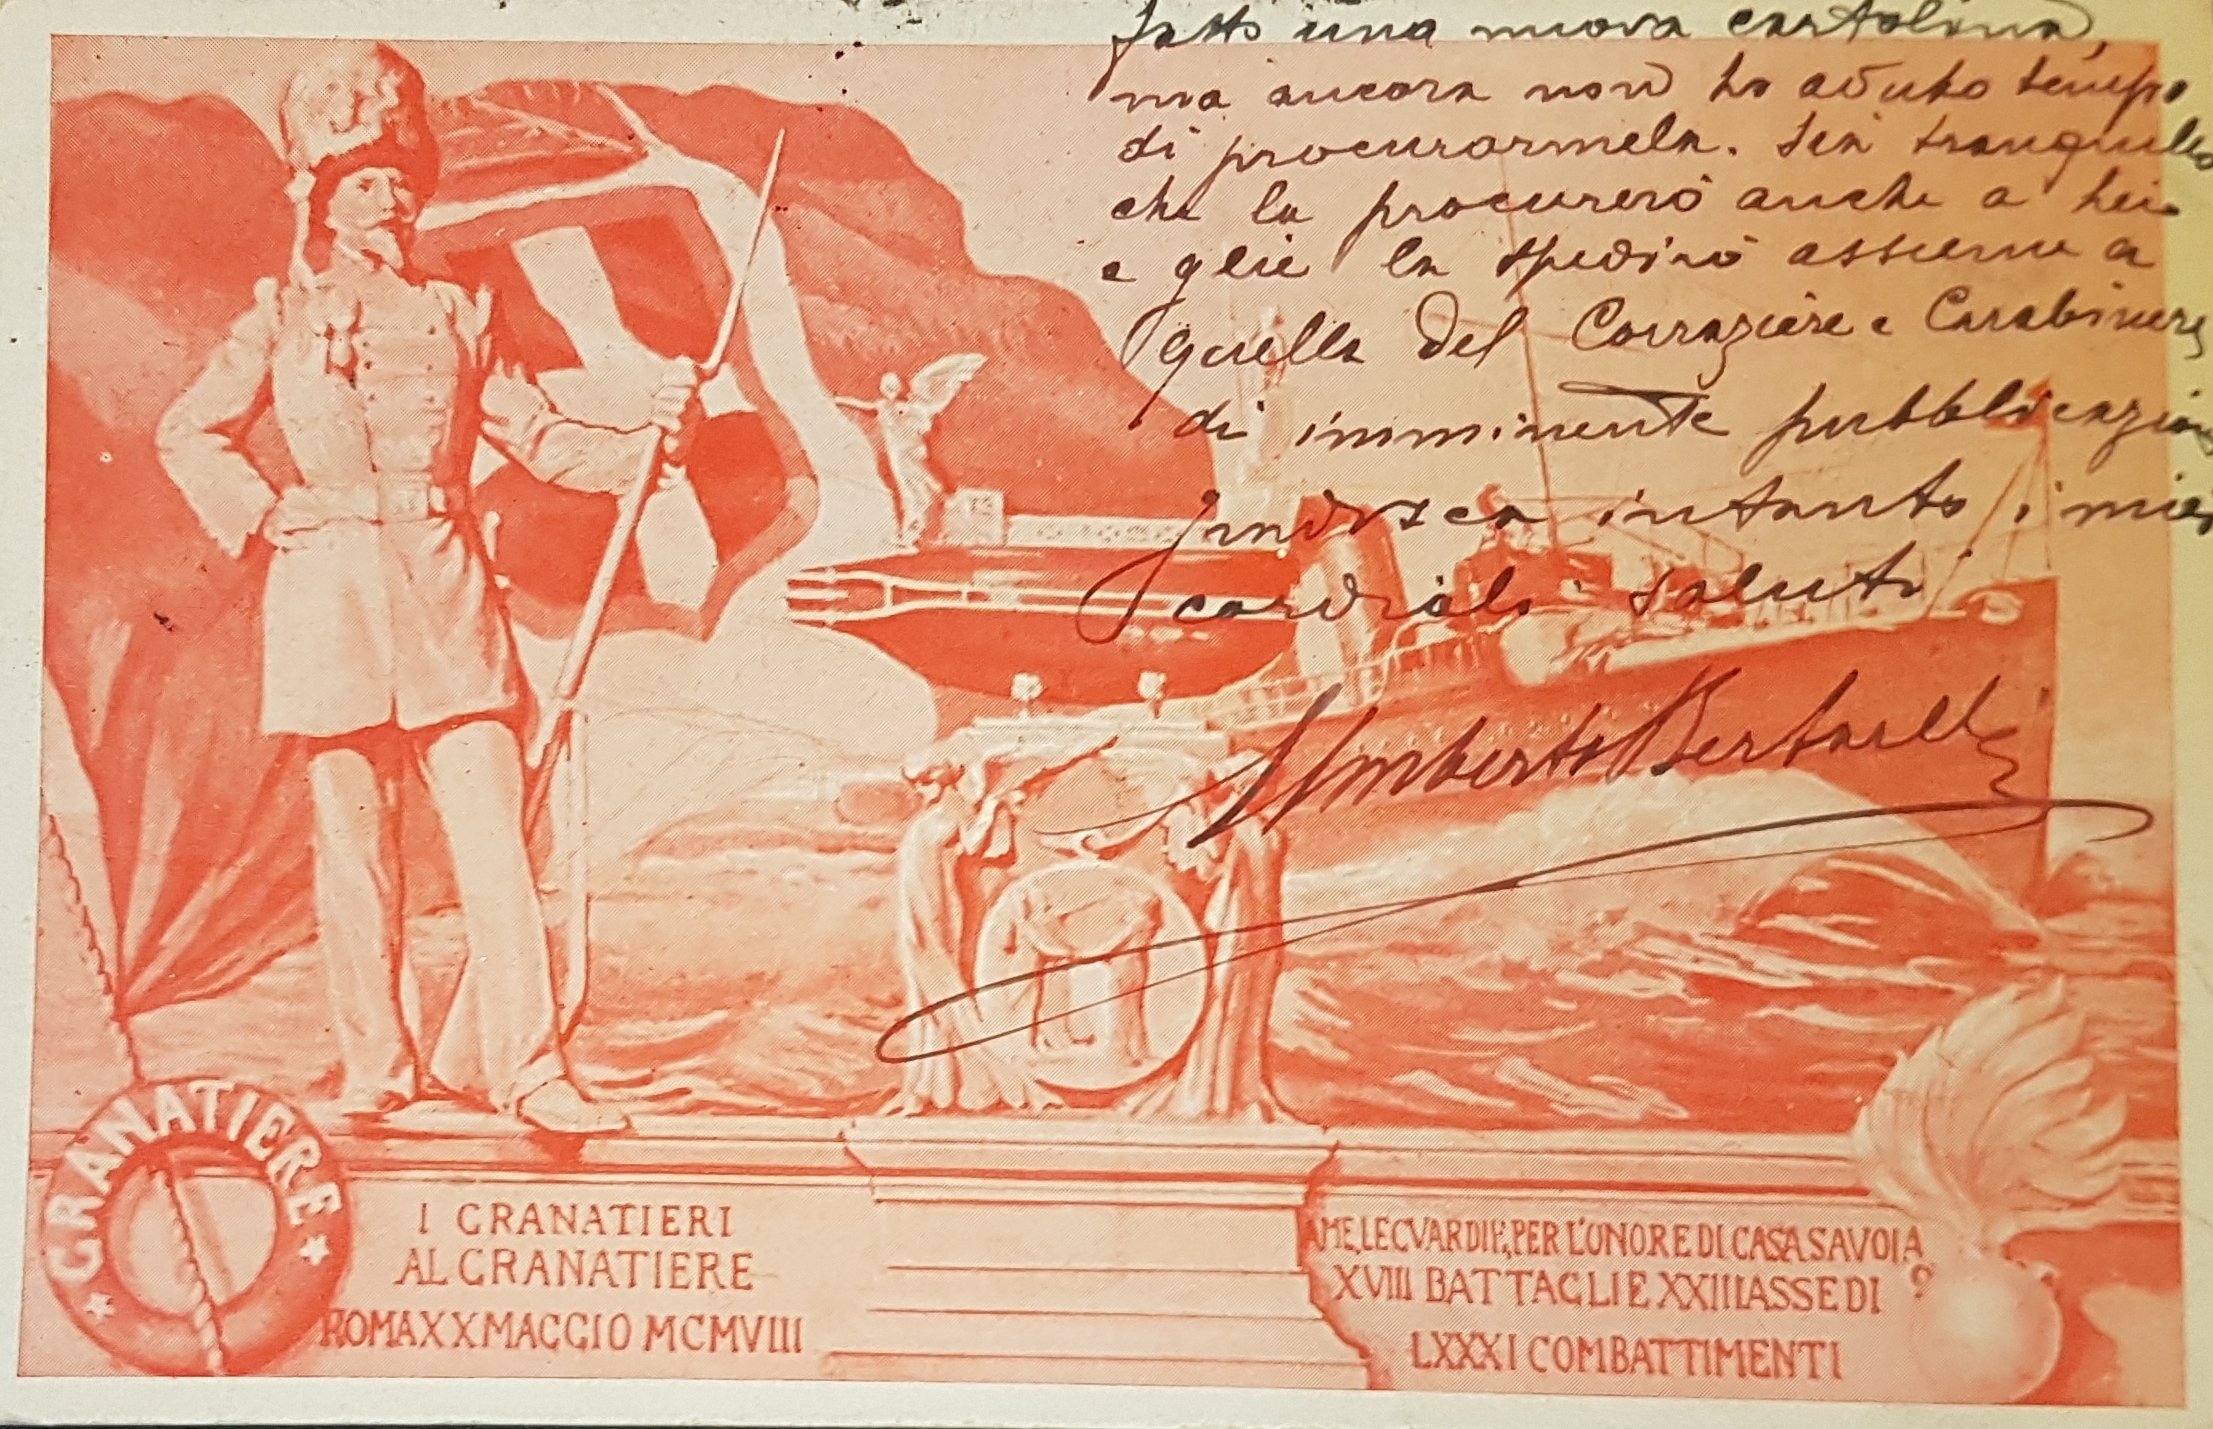 fatto una nuova cartolina,
ma ancora non ho avuto tempo
di procurarmela. Sia tranquillo
che la procurerò anche a Lei
e glie la spedirò assieme a
quella del Corazziere e Carabiniere
di imminente pubblicazione
Gradisca intanto i miei
cordiali saluti
Umberto Bertarelli
GRANATIERE
I GRANATIERI
AL GRANATIERE
ROMA XX MAGGIO MCMVIII
A ME, LE GVARDIE, PER L'ONORE DI CASA SAVOIA
XVIII BATTAGLIE XXIII ASSEDI
LXXXI COMBATTIMENTI